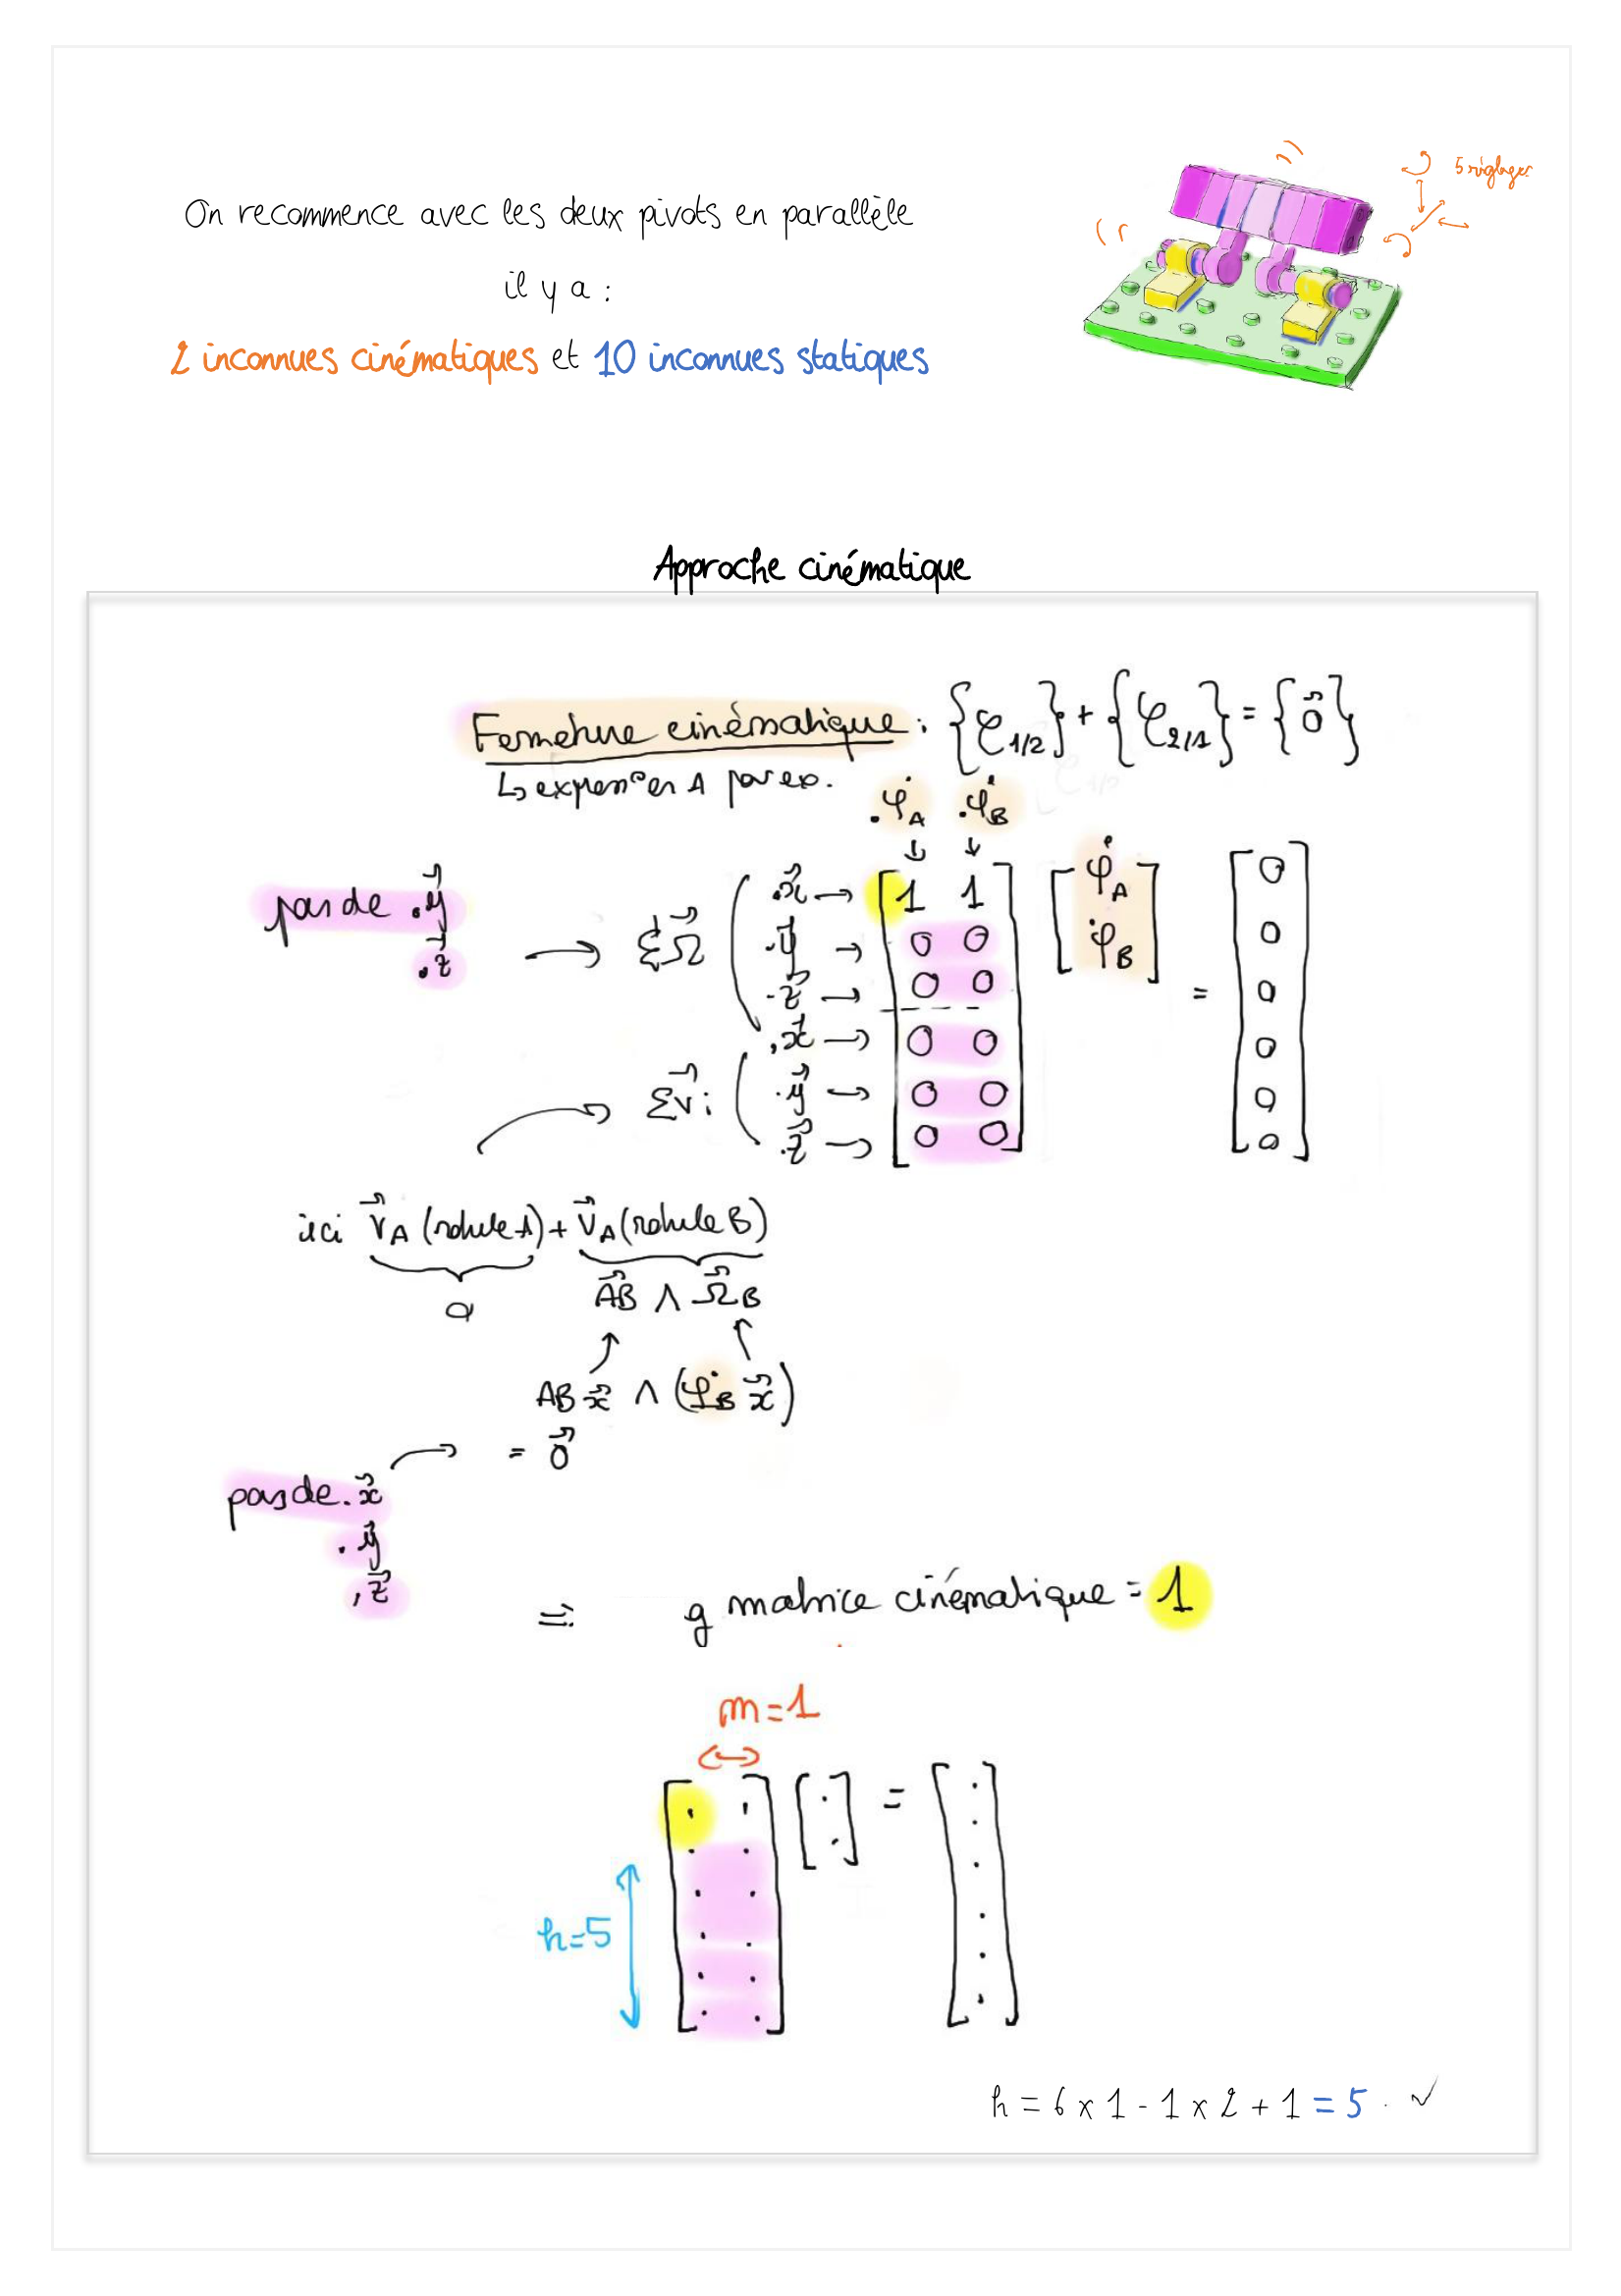 5 réglages
On recommence avec les deux pivots en parallèle
il y a :
2 inconnues cinématiques et 10 inconnues statiques
Approche cinématique
Fermeture cinématique : {𝒱1/2} + {𝒱2/1} = {0⃗}
↳ expren° en A par ex.
.φ̇A .φ̇B
↓ ↓
pas de .y⃗
.z⃗
→ ΣΩ⃗ ( .x⃗ → [ 1 1 ] [ φ̇A ] = [ 0 ]
.y⃗ → 0 0 φ̇B 0
.z⃗ → 0 0 0
.x⃗ → 0 0 0
ΣV⃗ : ( .y⃗ → 0 0 0
.z⃗ → 0 0 0
ici V⃗A (rotule A) + V⃗A (rotule B)
0 AB⃗ ∧ Ω⃗B
AB x⃗ ∧ (φ̇B x⃗)
= 0⃗
pas de .x⃗
.y⃗
.z⃗
=) rg matrice cinématique = 1
m=1
[ . . ] [ . ] = [ . ]
h=5
h = 6 x 1 - 1 x 2 + 1 = 5 . ✓